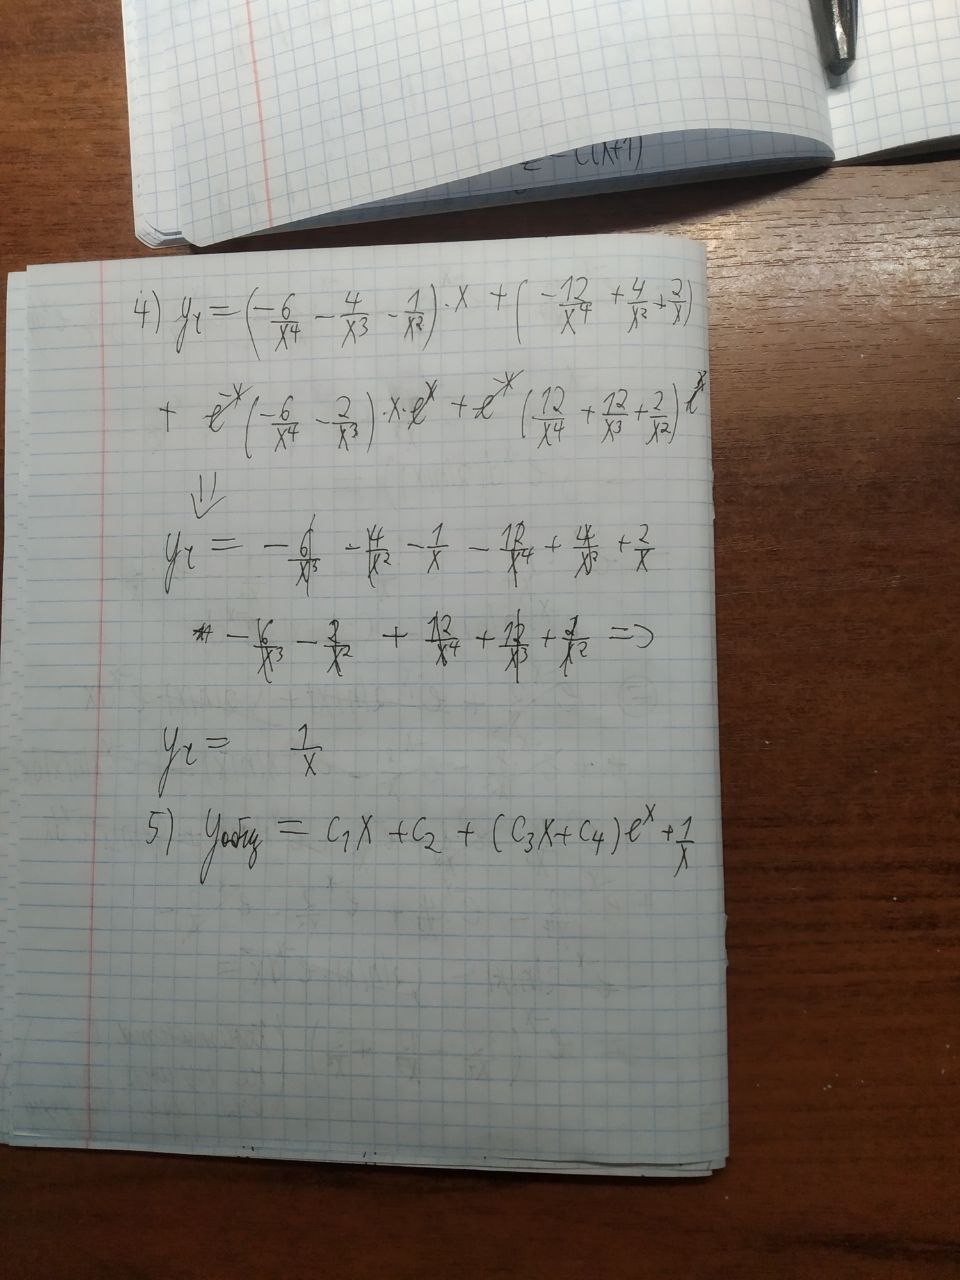 z = C(x+1)
4) yч = (-6/x⁴ - 4/x³ - 1/x²)·x + (-12/x⁴ + 4/x² + 2/x)
+ e⁻ˣ(-6/x⁴ - 2/x³)·x·eˣ + e⁻ˣ(12/x⁴ + 12/x³ + 2/x²)eˣ
⇓
yч = -6/x³ - 4/x² - 1/x - 12/x⁴ + 4/x² + 2/x
- 6/x³ - 2/x² + 12/x⁴ + 12/x³ + 2/x² =>
yч = 1/x
5) yобщ = C₁x + C₂ + (C₃x + C₄)eˣ + 1/x